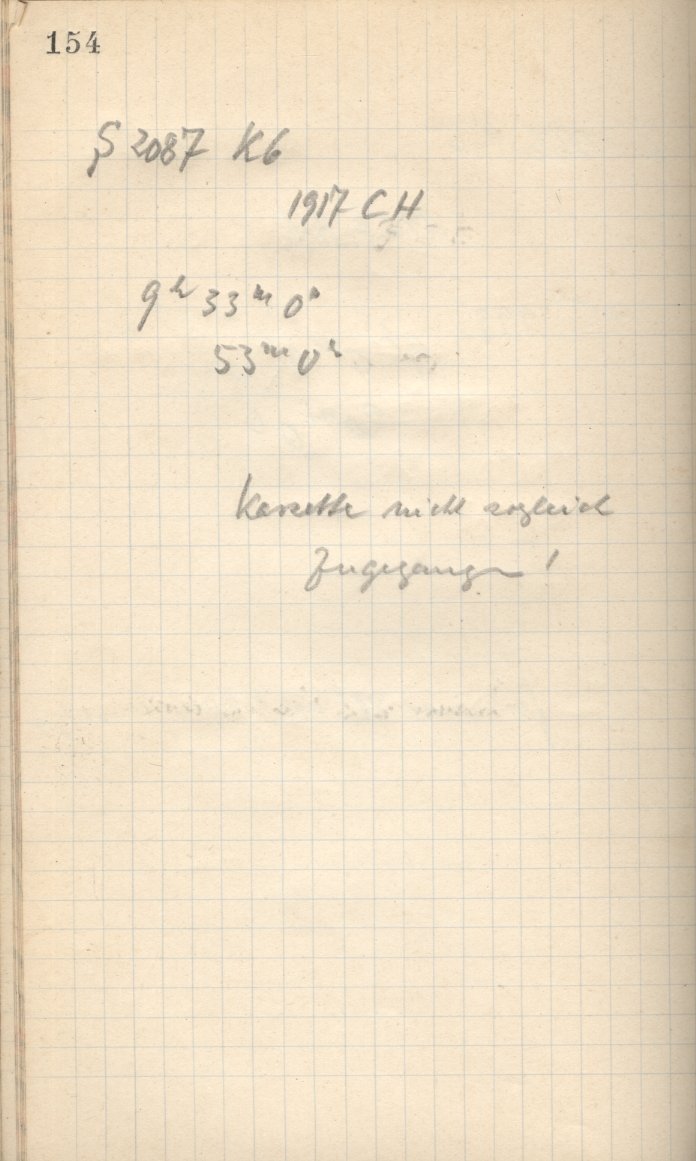 154
S 2087 K6
1917 CH
9h 33m 0s
53m 0s
Kassette nicht sogleich
zugegangen!